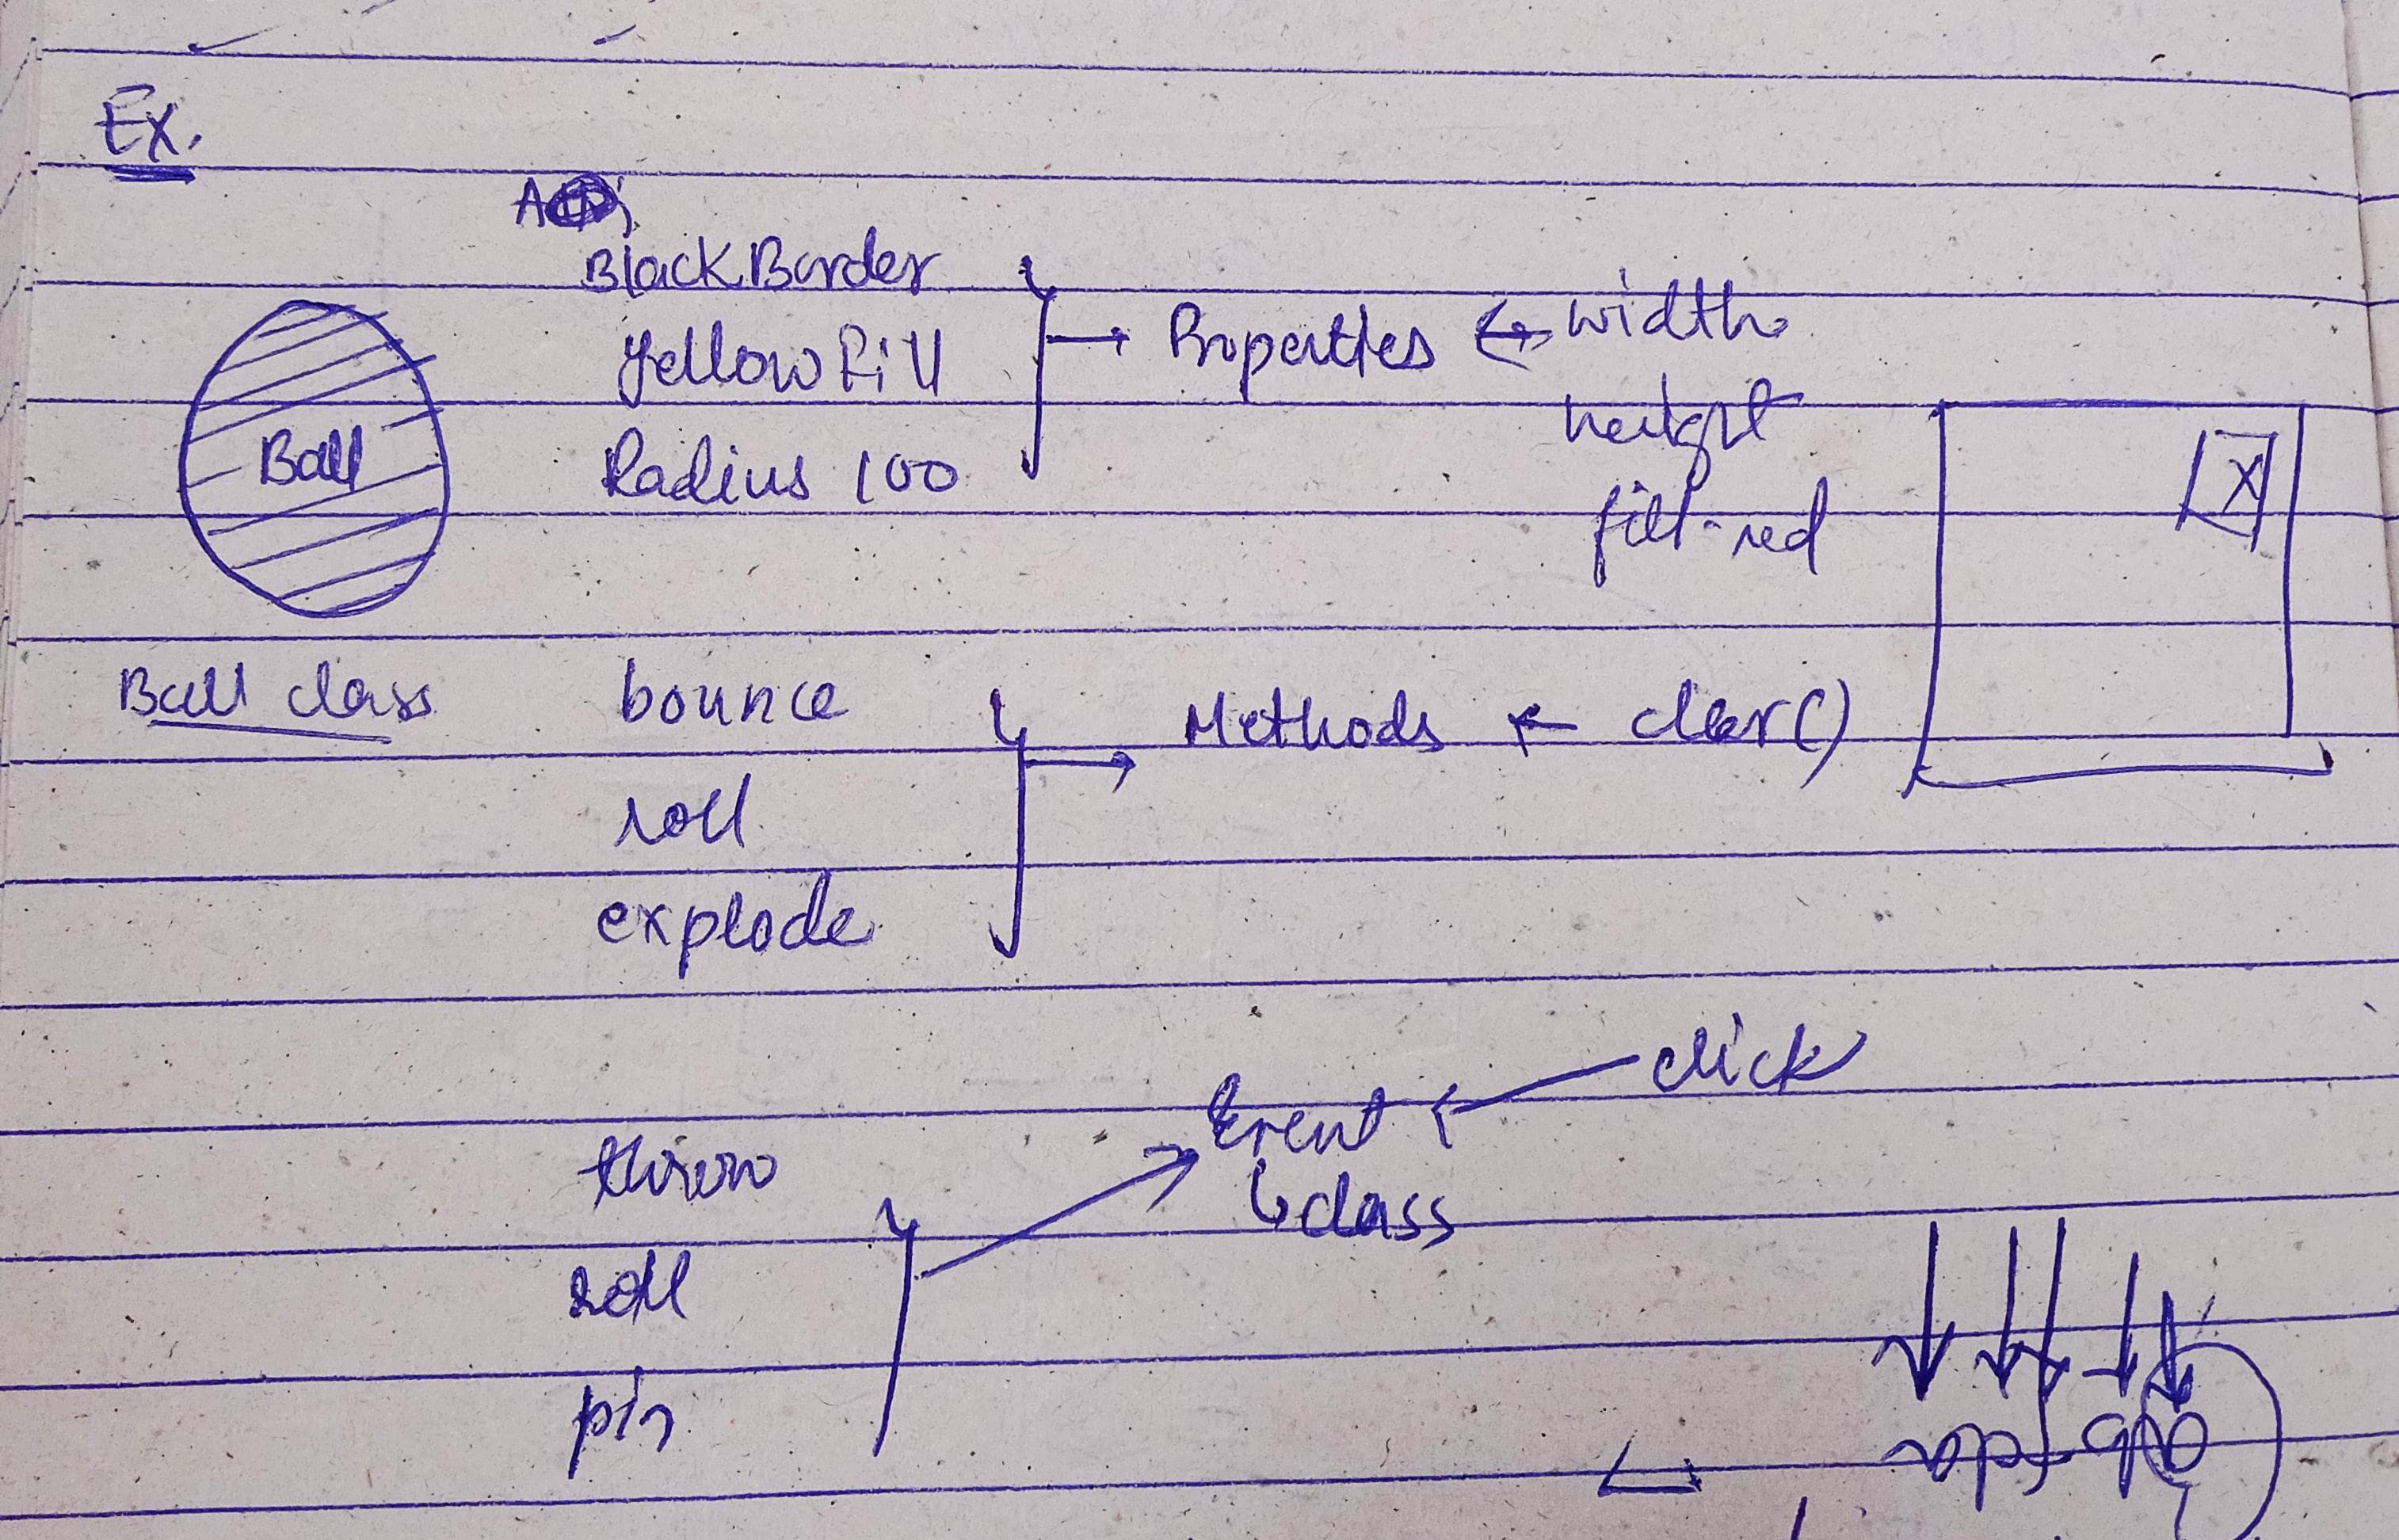 Ex.
Black Border
Yellow Fill
Radius 100
Properties
width
height
fill-red
X
Ball
Ball class
bounce
roll
explode
Methods
clear()
throw
roll
pin
Event
class
click